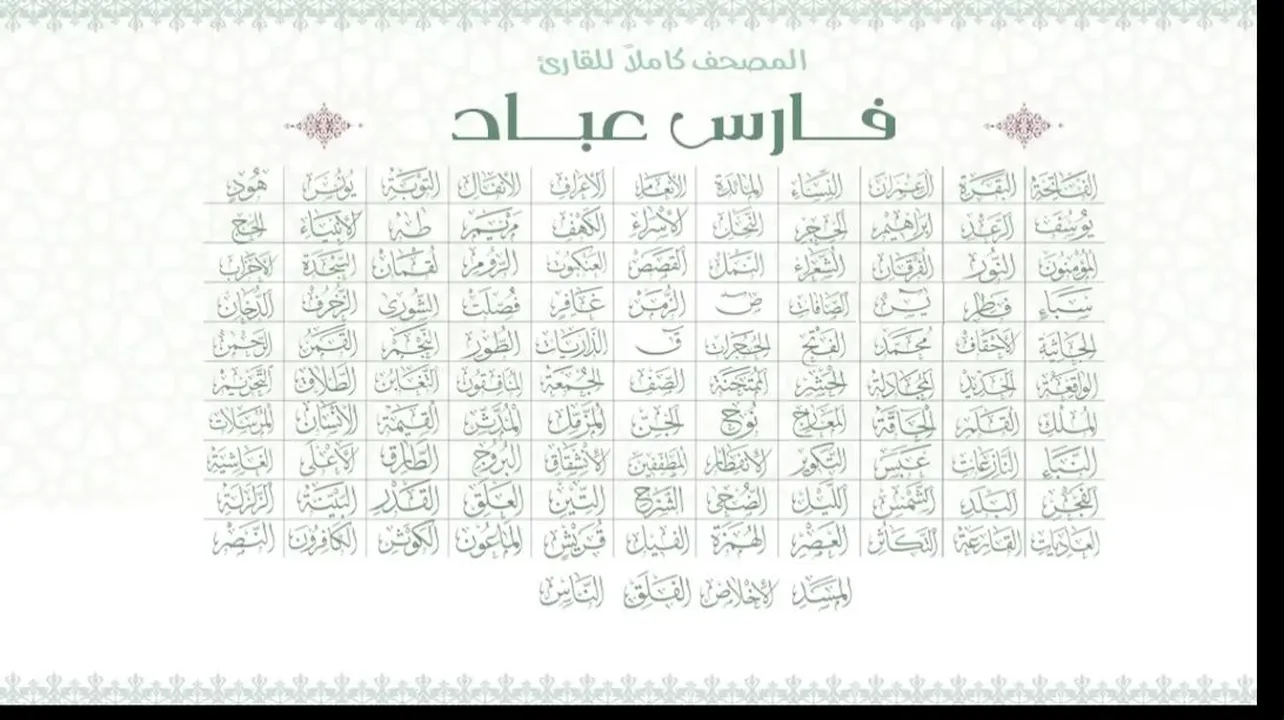 المصحف كاملاً للقارئ
فارس عباد
الفاتحة البقرة آل عمران النساء المائدة الأنعام الأعراف الأنفال التوبة يونس هود
يوسف الرعد إبراهيم الحجر النحل الإسراء الكهف مريم طه الأنبياء الحج
المؤمنون النور الفرقان الشعراء النمل القصص العنكبوت الروم لقمان السجدة الأحزاب
سبإ فاطر يس الصافات ص الزمر غافر فصلت الشورى الزخرف الدخان
الجاثية الأحقاف محمد الفتح الحجرات ق الذاريات الطور النجم القمر الرحمن
الواقعة الحديد المجادلة الحشر الممتحنة الصف الجمعة المنافقون التغابن الطلاق التحريم
الملك القلم الحاقة المعارج نوح الجن المزمل المدثر القيمة الإنسان المرسلات
النبإ النازعات عبس التكوير الانفطار المطففين الانشقاق البروج الطارق الأعلى الغاشية
الفجر البلد الشمس الليل الضحى الشرح التين العلق القدر البينة الزلزلة
العاديات القارعة التكاثر العصر الهمزة الفيل قريش الماعون الكوثر الكافرون النصر
المسد الإخلاص الفلق الناس